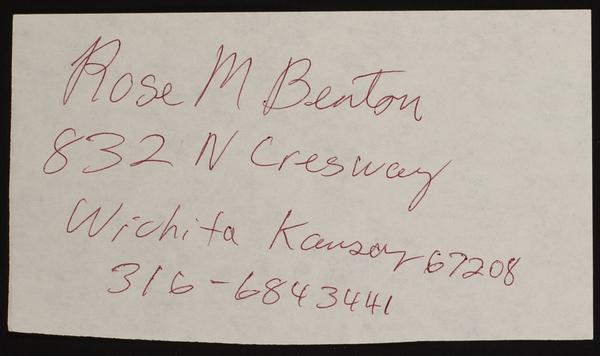 Rose M Benton
832 N Cresway
Wichita Kansas 67208
316-6843441